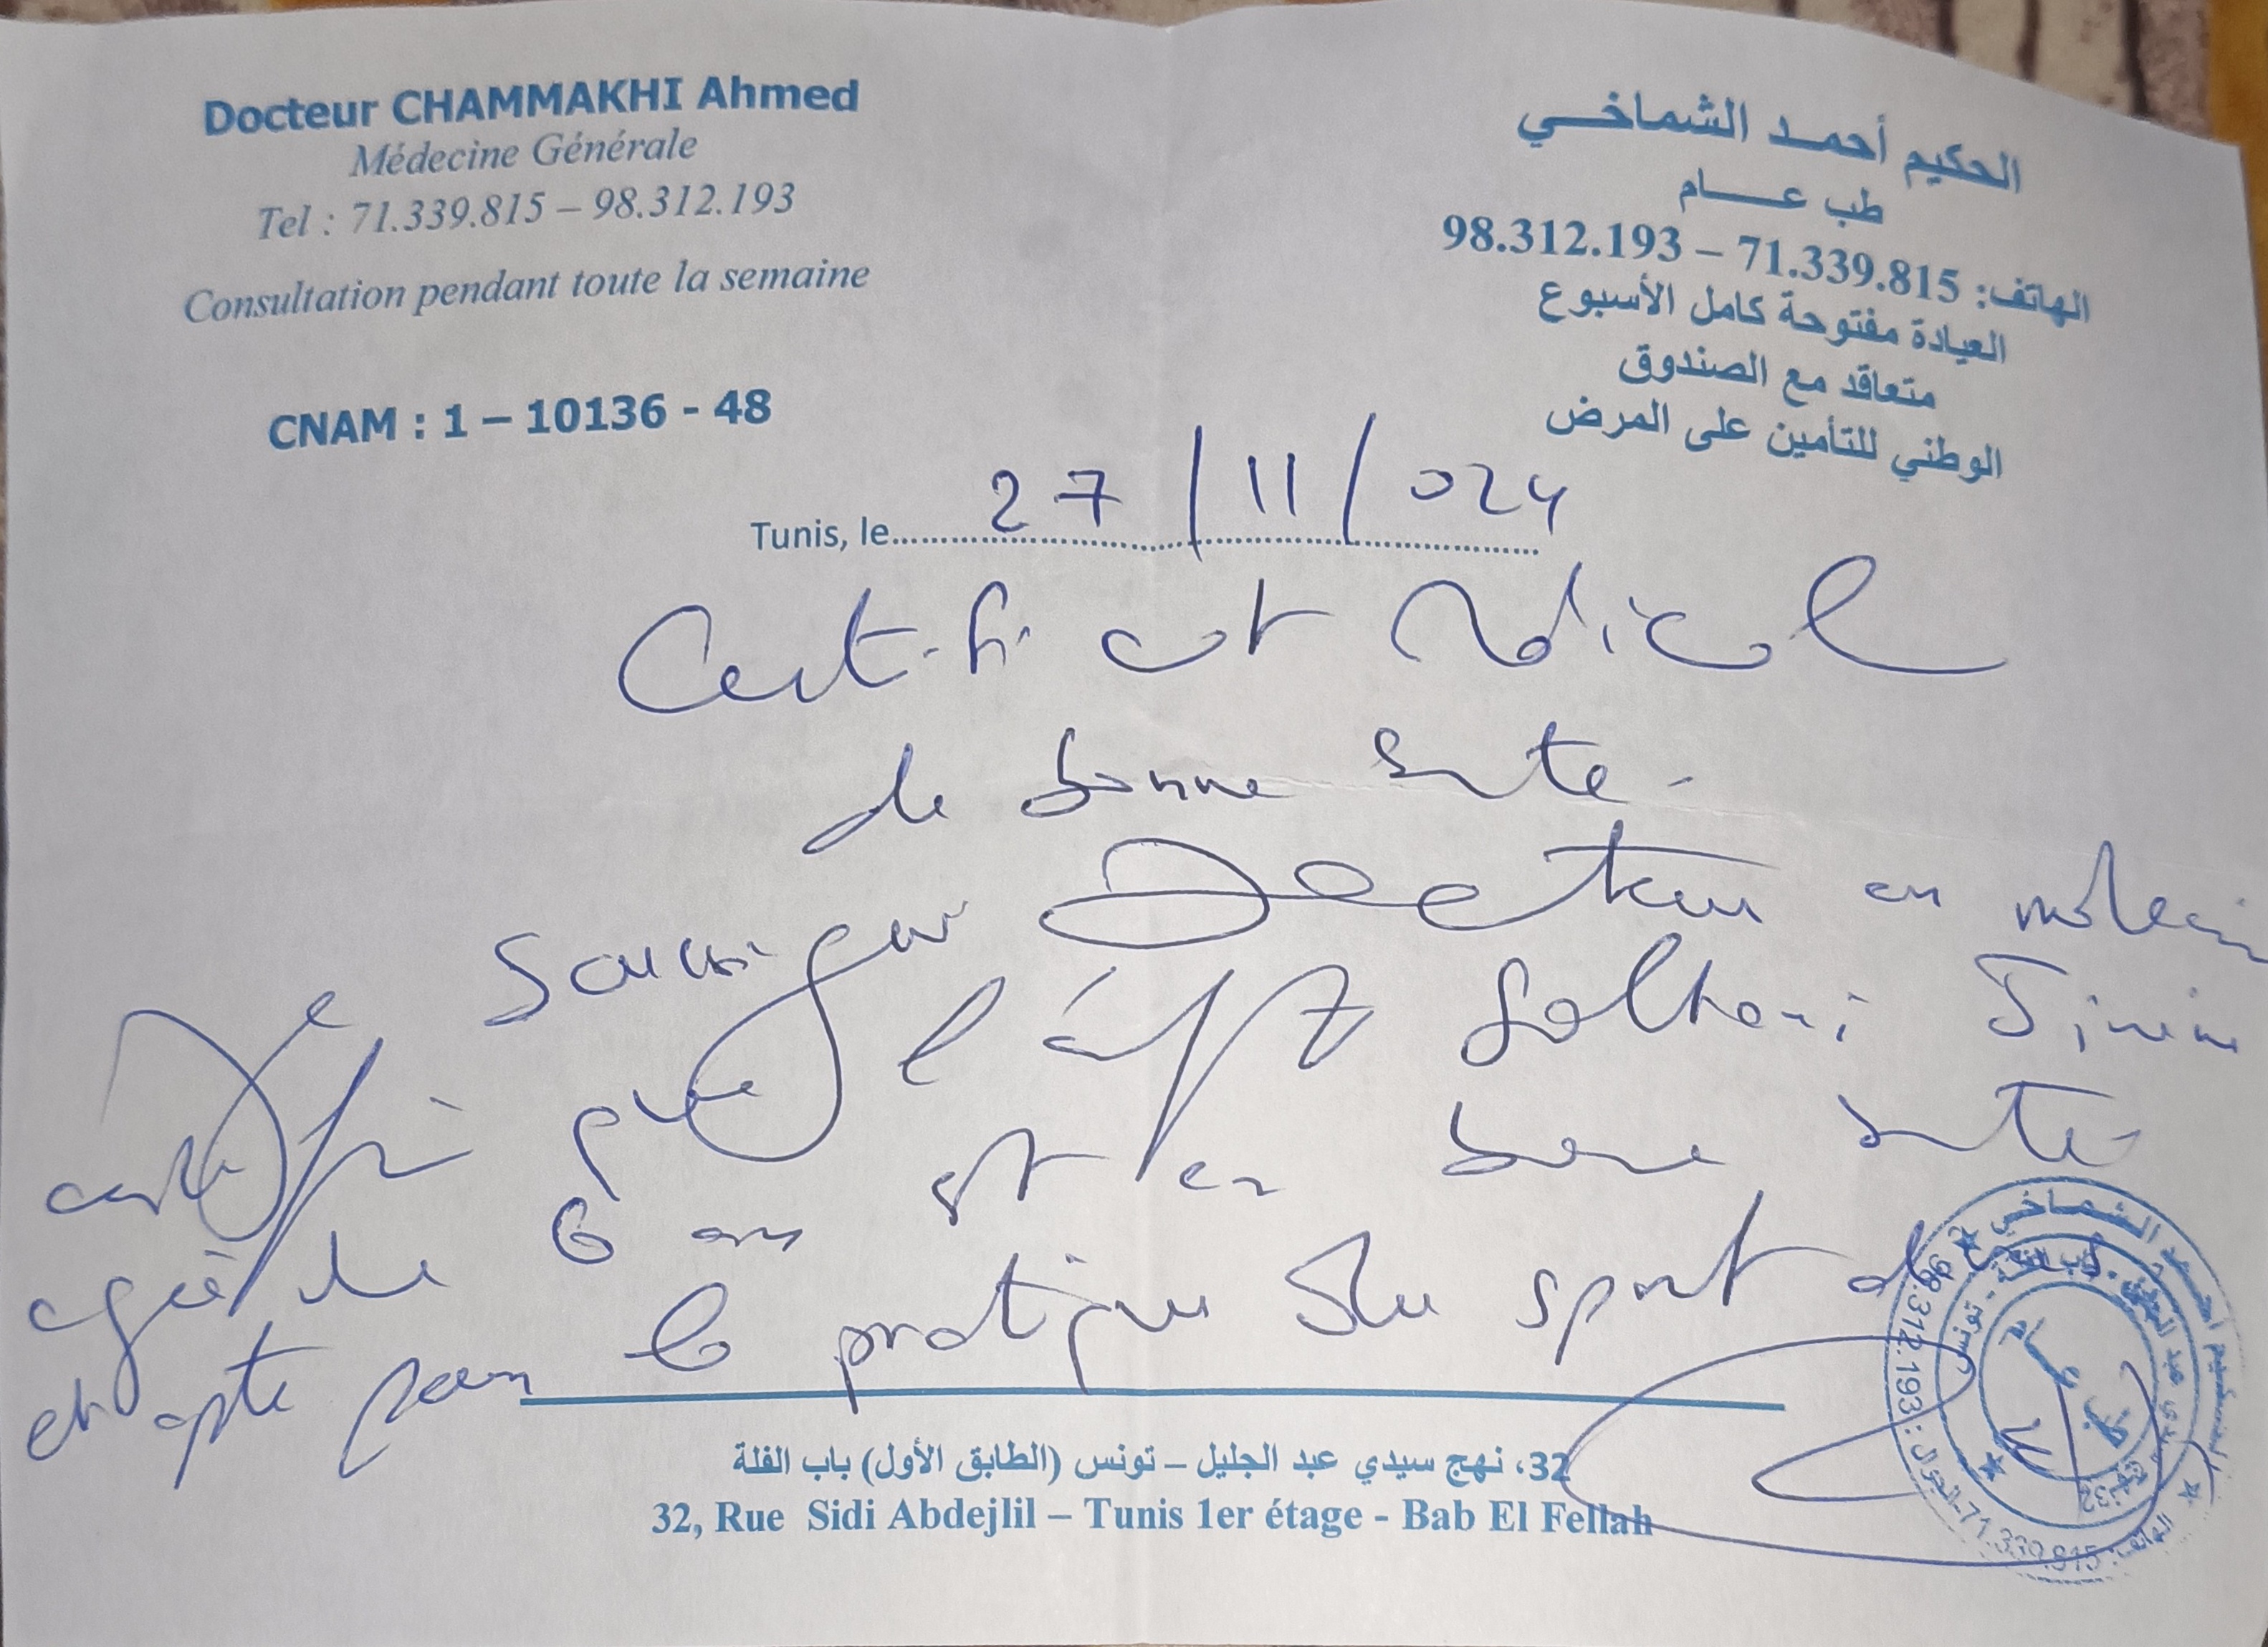 Docteur CHAMMAKHI Ahmed
Médecine Générale
Tel : 71.339.815 – 98.312.193
Consultation pendant toute la semaine
CNAM : 1 – 10136 - 48
الحكيم أحمد الشماخي
طب عام
الهاتف: 71.339.815 – 98.312.193
العيادة مفتوحة كامل الأسبوع
متعاقد مع الصندوق
الوطني للتأمين على المرض
Tunis, le 27/11/024
Certificat Médical
de bonne santé
Je soussigné Docteur en médecine
certifie que l'enft
agée de 6 ans est en bonne santé
et apte pour la pratique du sport
32، نهج سيدي عبد الجليل – تونس (الطابق الأول) باب الفلة
32, Rue Sidi Abdejlil – Tunis 1er étage - Bab El Fellah